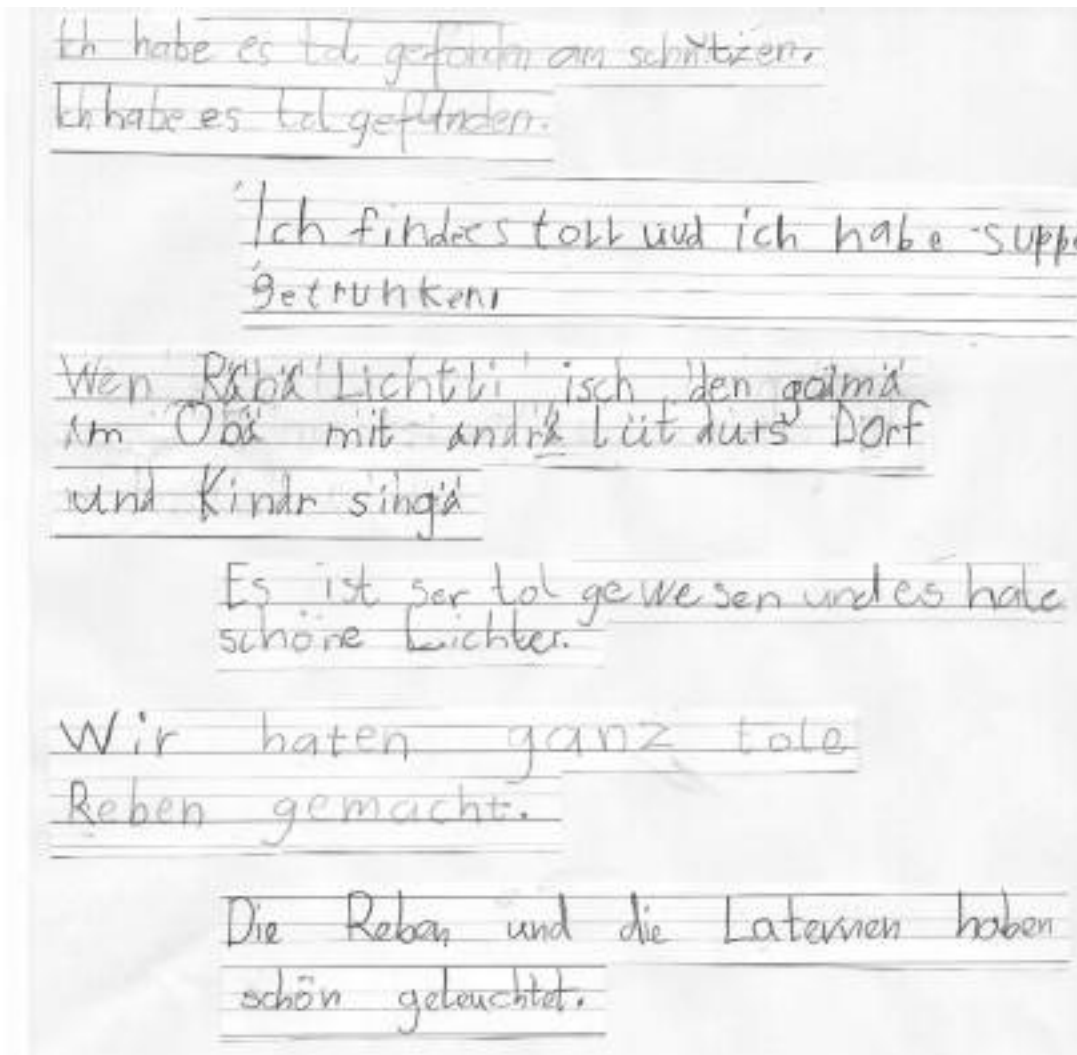 Ich habe es tol gefonden am schnitzen.
Ich habe es tol gefunden.
Ich finde es toll und ich habe suppe
getrunken.
Wen Räbä Lichtli isch den gömä
im Obä mit andrä Lüt durs Dorf
und Kindr singä
Es ist ser tol gewesen und es hate
schöne Lichter.
Wir haten ganz tole
Reben gemacht.
Die Reben und die Laternen haben
schön geleuchtet.